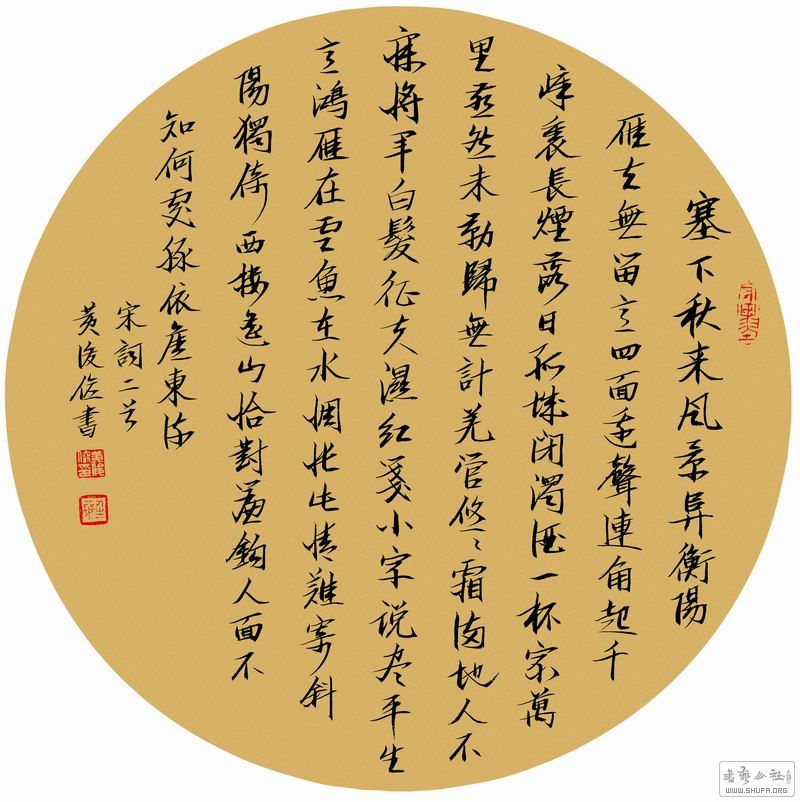 塞下秋来风景异衡陽
雁去無留意四面边聲連角起千
嶂裏長煙落日孤城闭濁酒一杯家萬
里燕然未勒歸無計羌管悠〻霜满地人不
寐将军白髮征夫淚红箋小字说尽平生
意鴻雁在雲魚在水惆怅此情難寄斜
陽獨倚西樓遥山恰對簾鈎人面不
知何處绿依舊東流
宋詞二首
黄俊書
書藝公社
WWW.SHUFA.ORG